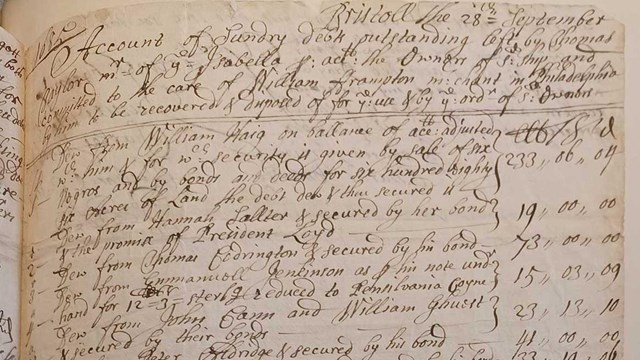 Bristoll the 28th September
1685
Account of Sundry debts outstanding left by Thomas
Taylor mr of ye Isabella pr actt the Owners of sd ship and
Comitted to the care of William Frampton mrchant in Philadelphia
to be recovered & disposed of for yr use & by ye ordr of sd Owners
Dew from William Haig on ballance of actt adjusted
wth him & for wch security is given by sale of six
Negros and by bonds an deeds for six hundred Eighty
Acres of Land the debt dew & thus secured is 233 „ 06 „ 04
Dew from Hannah Sallter & secured by her bond
& the promise of President Loyd 19 „ 00 „ 00
Dew from Thomas Codrington & secured by his bond 73 „ 00 „ 00
Dew from Emmanuell Jenkinson as pr his note undr
hand for 12 = 3 = sterlg reduced to Pensilvania Coyne 15 „ 03 „ 09
Dew from Johns Cann and William Ghuest
& secured by their bonds 23 „ 13 „ 10
Peter Aldridge & secured by his bond 41 „ 00 „ 00